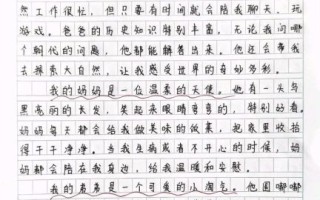 然工作很忙，但只要有时间就会陪我聊天、玩
游戏。爸爸的历史知识特别丰富，无论我问哪
个朝代的问题，他都能解答出来。他还会带我
去探索大自然，让我感受世界的奇妙多彩。
我的妈妈是一位温柔的天使。她有一头乌
黑亮丽的长发，笑起来眼睛弯弯的，特别好看。
妈妈每天都会给我做美味的饭菜，把家里收拾
得干干净净。当我生病或者不开心的时候，妈
妈都会陪在我身边，给我温暖和安慰。
我的弟弟是一个可爱的小淘气。他圆嘟嘟